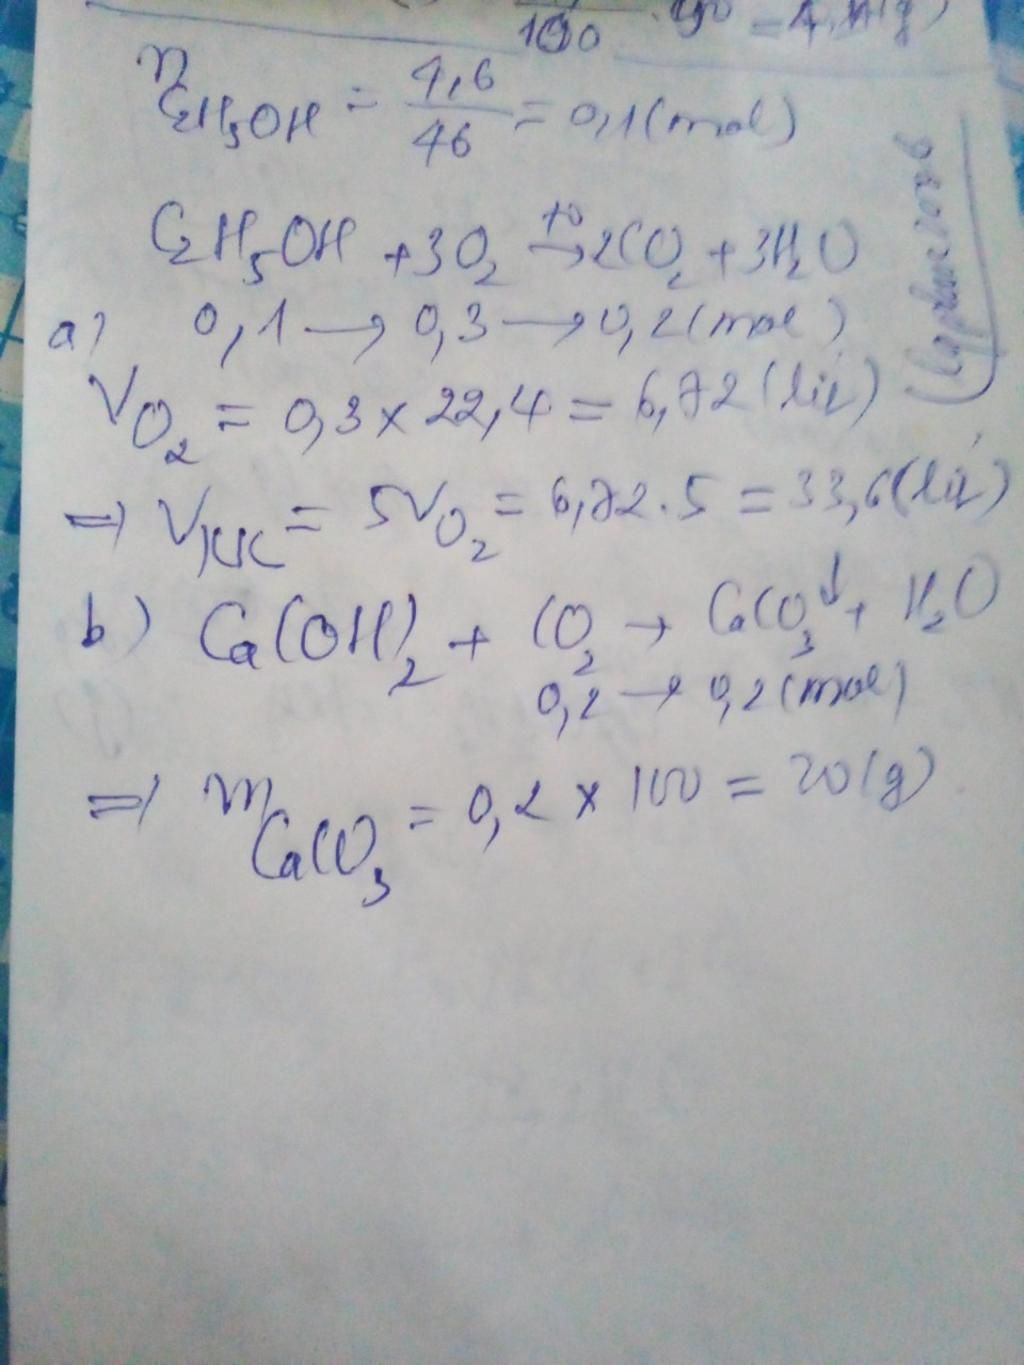 100
n C2H5OH = 4,6/46 = 0,1 (mol)
C2H5OH + 3O2 →t° 2CO2 + 3H2O
a) 0,1 → 0,3 → 0,2 (mol)
VO2 = 0,3 x 22,4 = 6,72 (lít)
=> VKK = 5VO2 = 6,72 . 5 = 33,6 (lít)
b) Ca(OH)2 + CO2 → CaCO3↓ + H2O
0,2 → 0,2 (mol)
=> m CaCO3 = 0,2 x 100 = 20 (g)